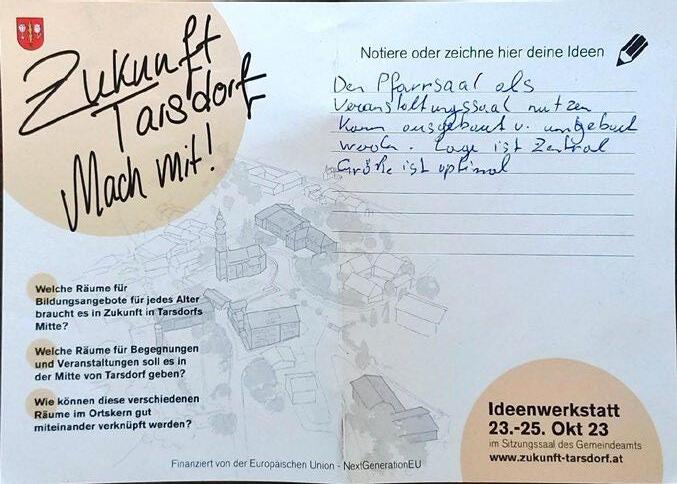 Zukunft
Tarsdorf
Mach mit!
Notiere oder zeichne hier deine Ideen
Den Pfarrsaal als
Veranstaltungssaal nutzen
Kann ausgebaut u. umgebaut
werden. Lage ist Zentral
Größe ist optimal
Welche Räume für
Bildungsangebote für jedes Alter
braucht es in Zukunft in Tarsdorfs
Mitte?
Welche Räume für Begegnungen
und Veranstaltungen soll es in
der Mitte von Tarsdorf geben?
Wie können diese verschiedenen
Räume im Ortskern gut
miteinander verknüpft werden?
Ideenwerkstatt
23.-25. Okt 23
im Sitzungssaal des Gemeindeamts
www.zukunft-tarsdorf.at
Finanziert von der Europäischen Union - NextGenerationEU